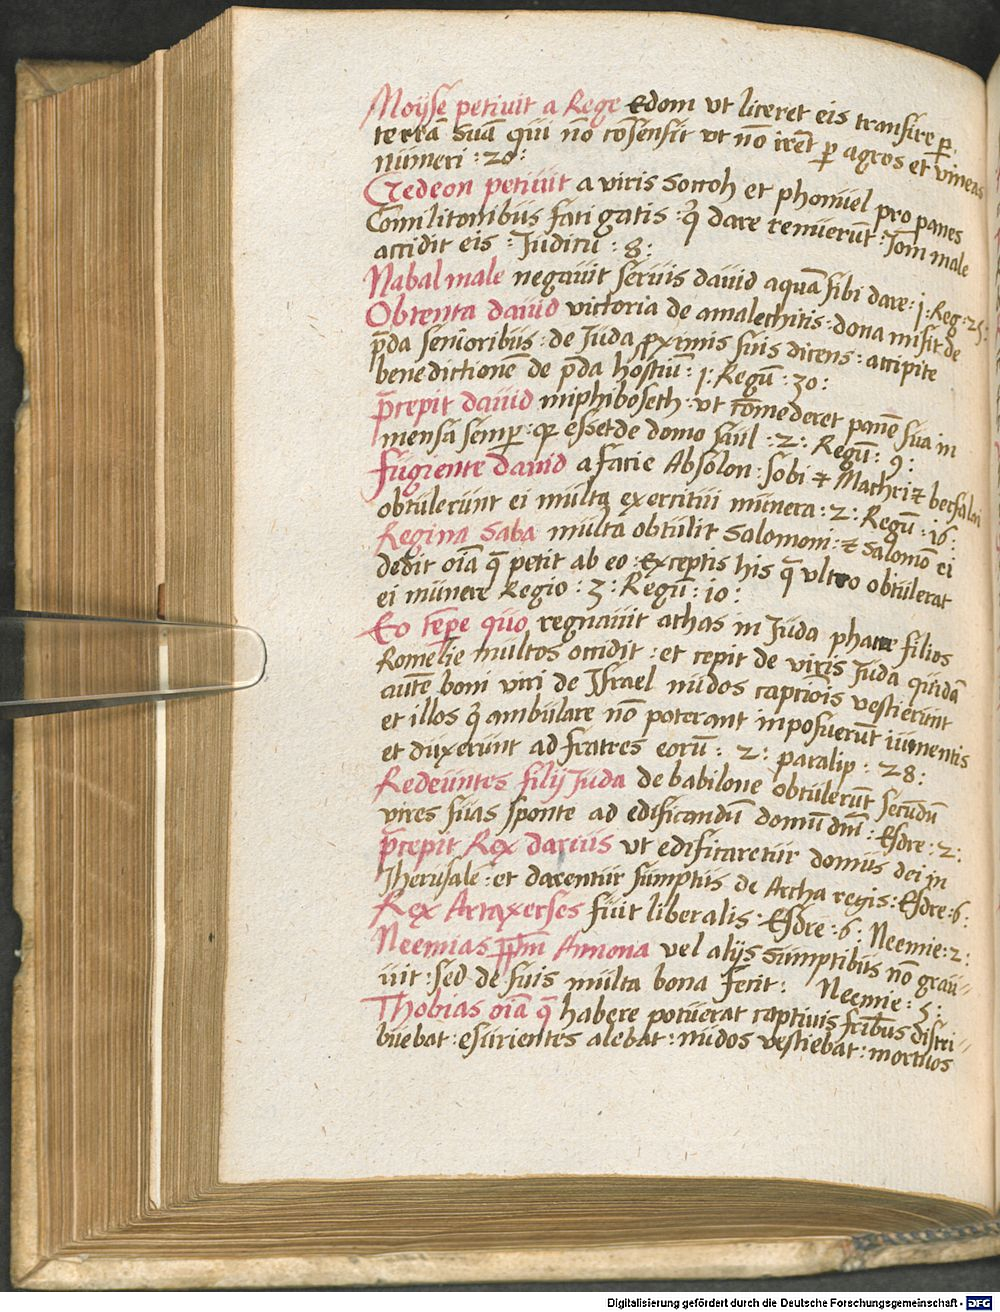 Moÿse petiuit a Rege Edom vt liceret eis transire p̲
terrã suã qui nõ cõsensit vt nõ irẽt p̲ agros et vineas
nũmeri : 20 :
Gedeon petiuit a viris Soccoh et phonuel pro panes
Comilitonibus fatigatis : q̃ dare renuerũt : Iom male
accidit eis : Iudicũ : 8 :
Nabal male negauit seruis dauid aquã sibi dare : 1 : Reg : 25 :
Obtenta dauid victoria de amalechitis : dona misit de
p̃da senioribus : de Iuda proximis suis dicens : accipite
benedictionẽ de p̃da hostiũ : 1 : Regũ : 30 :
p̃cepit dauid miphiboseth : vt cõmederet panẽ sua in
mensã semp̲ : qz esset de domo saul : 2 : Regũ : 9 :
fugiente dauid a facie Absolon : sobi et Machri et
obtulerunt ei multa exercitui munera : 2 : Regũ : 16 :
Regina Saba multa obtulit Salomoni : et Salomõ ei
dedit oĩa q̃ petit ab eo : Exceptis his q̃ vltro obtulerat
ei munere Regio : 3 : Regũ : 10 :
Eo tẽpe quo regnauit achas in Iuda phacee filios
Romelie multos occidit : et cepit de viris Iuda quidã
autẽ boni viri de Israel nudos captiois vestierunt
et illos q̃ ambulare nõ poterant inposuerũt iumentis
et duxerunt ad fratres eorũ : 2 : paralip : 28 :
Redeuntes filij Iuda de babilone obtulerũt secudũ
vires suas sponte ad edificandũ domũ dñi : Esdre : 2 :
p̃cepit Rex darius ut edificaretur domus dei in
Iherusalẽ : et darentur sumptus de Archa regis : Esdre : 6 :
Rex Artaxerses fuit liberalis : Esdre : 6 : Neemie : 2 :
Neemias Annona vel alijs sumptibus nõ graũ=
uit : sed de suis multa bona fecit : Neemie : 5 :
Thobias oĩa q̃ habere potuerat captiuis frĩbus distri=
buebat : esurientes alebat : nudos vestiebat : mortuos
Digitalisierung gefördert durch die Deutsche Forschungsgemeinschaft - DFG